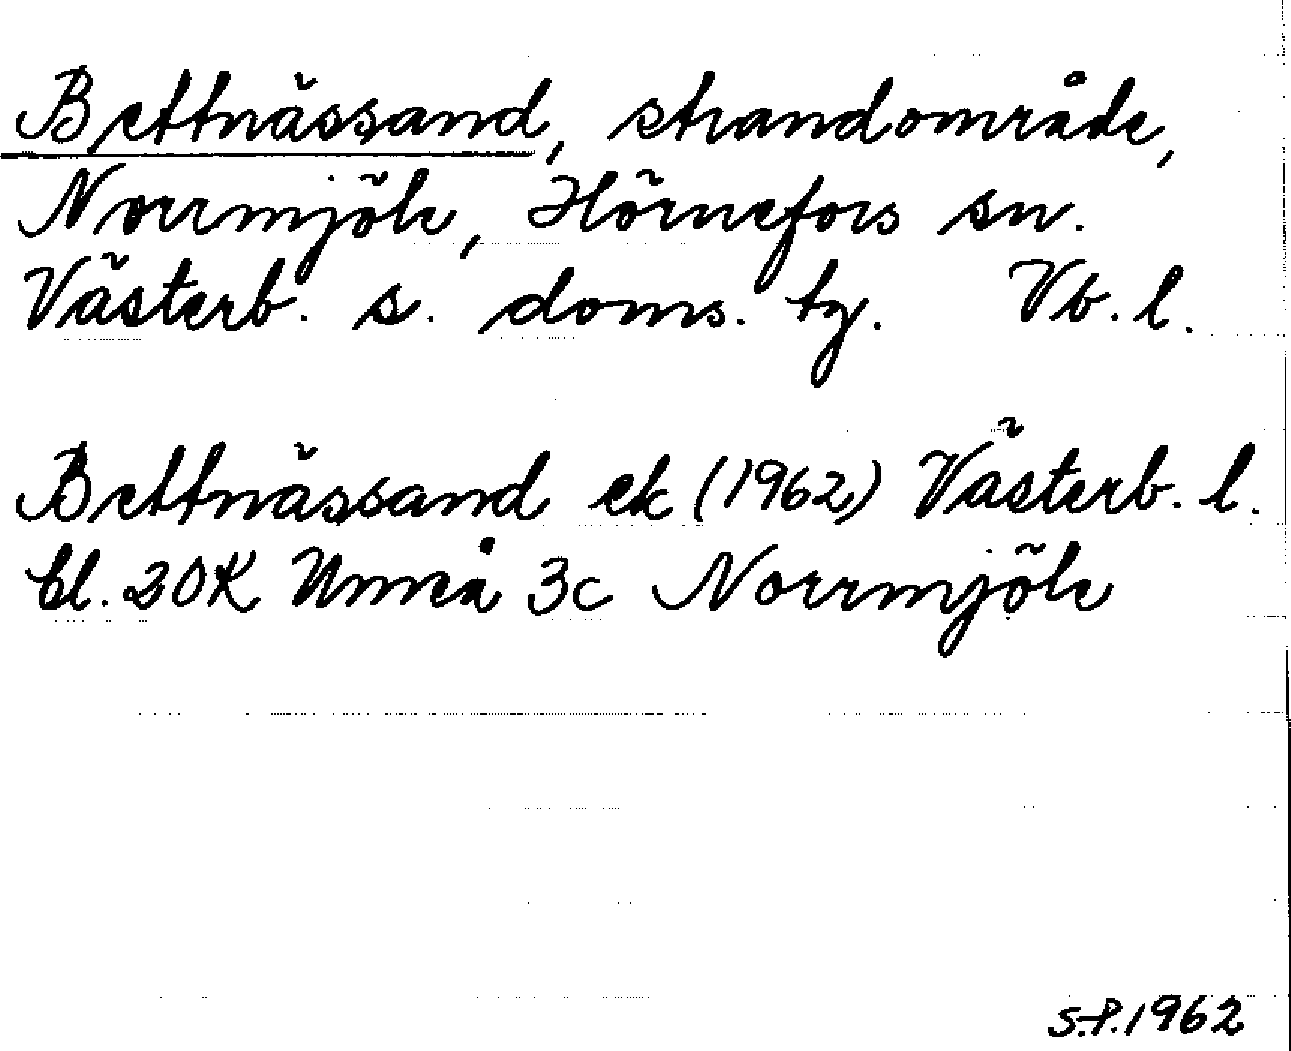 Bettnässand, strandområde,
Norrmjöle, Hörnefors sn.
Västerb. s. doms. tg. Vb. l.
Bettnässand ek (1962) Västerb. l.
bl. 20K Umeå 3c Norrmjöle
S.P. 1962